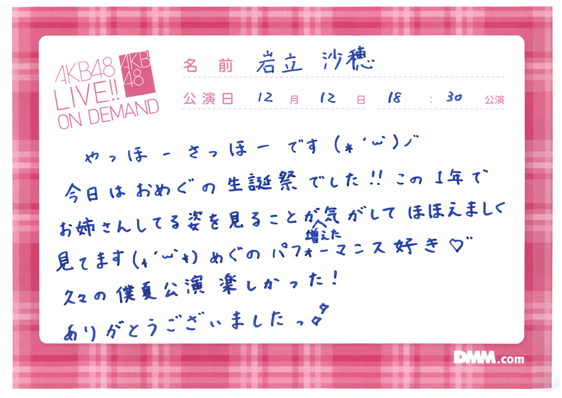 AKB48
LIVE!!
ON DEMAND
AKB
48
名前 岩立 沙穂
公演日 12月 12日 18:30 公演
やっほーさっほーです(*´ω`)ノ
今日はおめぐの生誕祭でした!!この1年で
お姉さんしてる姿を見ることが気がしてほほえましく
増えた
見てます(*´ω`*)めぐのパフォーマンス好き♡
久々の僕夏公演楽しかった!
ありがとうございましたっ
DMM.com